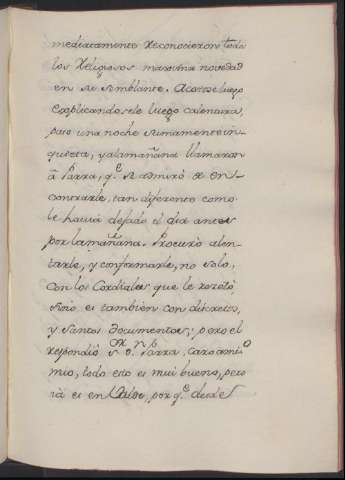 mediatamente reconocieron todos
los Religiosos maxima novedad
en su semblante. Acostose luego
explicandosele luego calentura,
paso una noche sumamente in-
quieta, y alamañana llamaron
â Parra, q.e se admirò de en-
contrarle, tan diferente como
le havia dejado el dia antes
por lamañana. Procurò alen-
tarle, y conformarle, no solo,
con los Cordiales que le rezetò,
sino es tambien con discretos,
y Santos documentos; pero el
respondiò S.or D.n Parra, caro ami-
mio, todo esto es mui bueno, pero
ià es en Valde, por q.e desde el